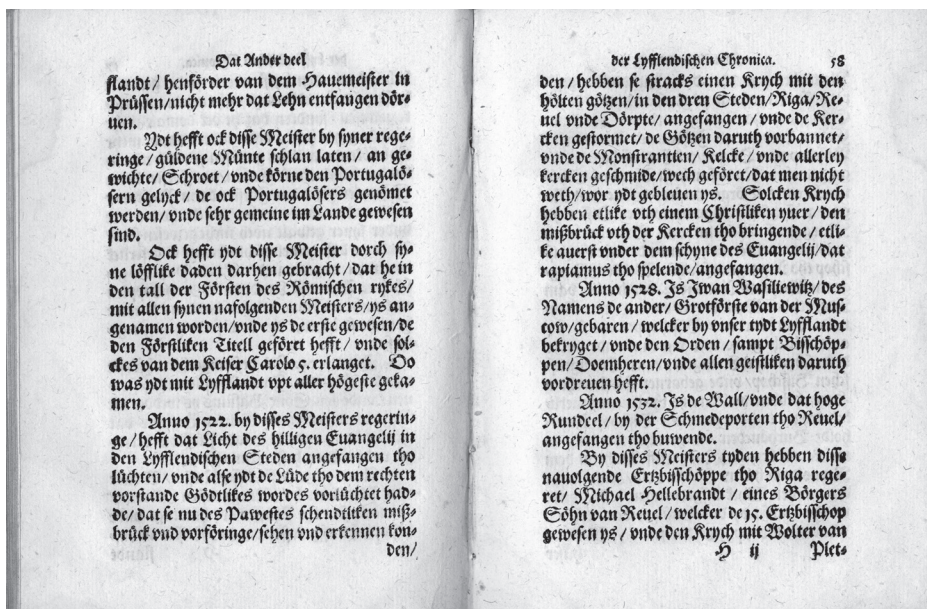 Dat Ander deel
fflandt / henförder van dem Hauemeister in
Prüssen/nicht mehr dat Lehn entfangen dör-
uen.
Ydt hefft ock disse Meister by syner rege-
ringe / güldene Münte schlan laten / an ge-
wichte/ Schroet / vnde körne den Portugalö-
sern gelyck / de ock Portugalösers genömet
werden/ vnde sehr gemeine im Lande gewesen
sind.
Ock hefft ydt disse Meister dorch sy-
ne löfflike daden darhen gebracht / dat he in
den tall der Försten des Römischen rykes/
mit allen synen nafolgenden Meisters/ys an-
genamen worden/vnde ys de erste gewesen/de
den Förstliken Titell geföret hefft / vnde sol-
ckes van dem Keiser Carolo 5. erlanget. Do
was ydt mit Lyfflandt vpt aller högeste geka-
men.
Anno 1522. by disses Meisters regerin-
ge / hefft dat Licht des hilligen Euangelij in
den Lyfflendischen Steden angefangen tho
lüchten/ vnde alse ydt de Lüde tho dem rechten
vorstande Gödtlikes wordes vorlüchtet had-
de/ dat se nu des Pawestes schendtliken miß-
brück vnd vorföringe/sehen vnd erkennen kon-
den/
der Lyfflendischen Chronica. 58
den / hebben se stracks einen Krych mit den
hölten götzen/in den dren Steden/Riga/Re-
uel vnde Dörpte/ angefangen / vnde de Ker-
cken gestormet/ de Götzen daruth vorbannet/
vnde de Monstrantien/ Kelcke/ vnde allerley
kercken geschmide/wech geföret/dat men nicht
weth/wor ydt gebleuen ys. Solcken Krych
hebben etlike vth einem Christliken yuer / den
mißbrück vth der Kercken tho bringende/ etli-
ke auerst vnder dem schyne des Euangelij/dat
rapiamus tho spelende/angefangen.
Anno 1528. Is Jwan Wasiliewitz/ des
Namens de ander/ Grotförste van der Mus-
cow/gebaren / welcker by vnser tydt Lyfflandt
bekryget / vnde den Orden / sampt Bisschöp-
pen/ Doemheren/ vnde allen geistliken daruth
vordreuen hefft.
Anno 1532. Is de Wall/vnde dat hoge
Rundeel/ by der Schmedeporten tho Reuel/
angefangen tho buwende.
By disses Meisters tyden hebben disse
nauolgende Ertzbisschöppe tho Riga rege-
ret/ Michael Hellebrandt / eines Börgers
Söhn van Reuel/ welcker de 15. Ertzbisschop
gewesen ys / vnde den Krych mit Wolter van
H ij Plet-